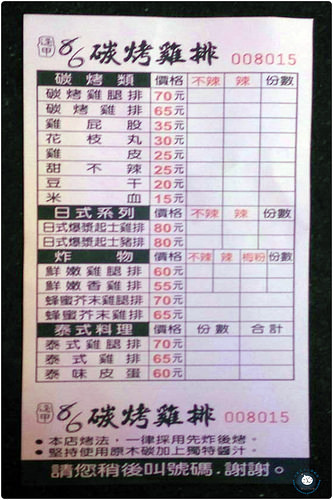 逢甲 86 碳烤雞排 008015
碳烤類 價格 不辣 辣 份數
碳烤雞腿排 70元
碳烤雞排 65元
雞屁股 35元
花枝丸 30元
雞皮 25元
甜不辣 25元
豆干 20元
米血 15元
日式系列 價格 不辣 辣 份數
日式爆漿起士雞排 80元
日式爆漿起士豬排 80元
炸物 價格 不辣 辣 梅粉 份數
鮮嫩雞腿排 60元
鮮嫩香雞排 55元
蜂蜜芥末雞腿排 70元
蜂蜜芥末雞排 65元
泰式料理 價格 份數 合計
泰式雞腿排 70元
泰式雞排 65元
泰味皮蛋 60元
逢甲 86 碳烤雞排 008015
●本店烤法,一律採用先炸後烤。
●堅持使用原木碳加上獨特醬汁。
請您稍後叫號碼.謝謝。